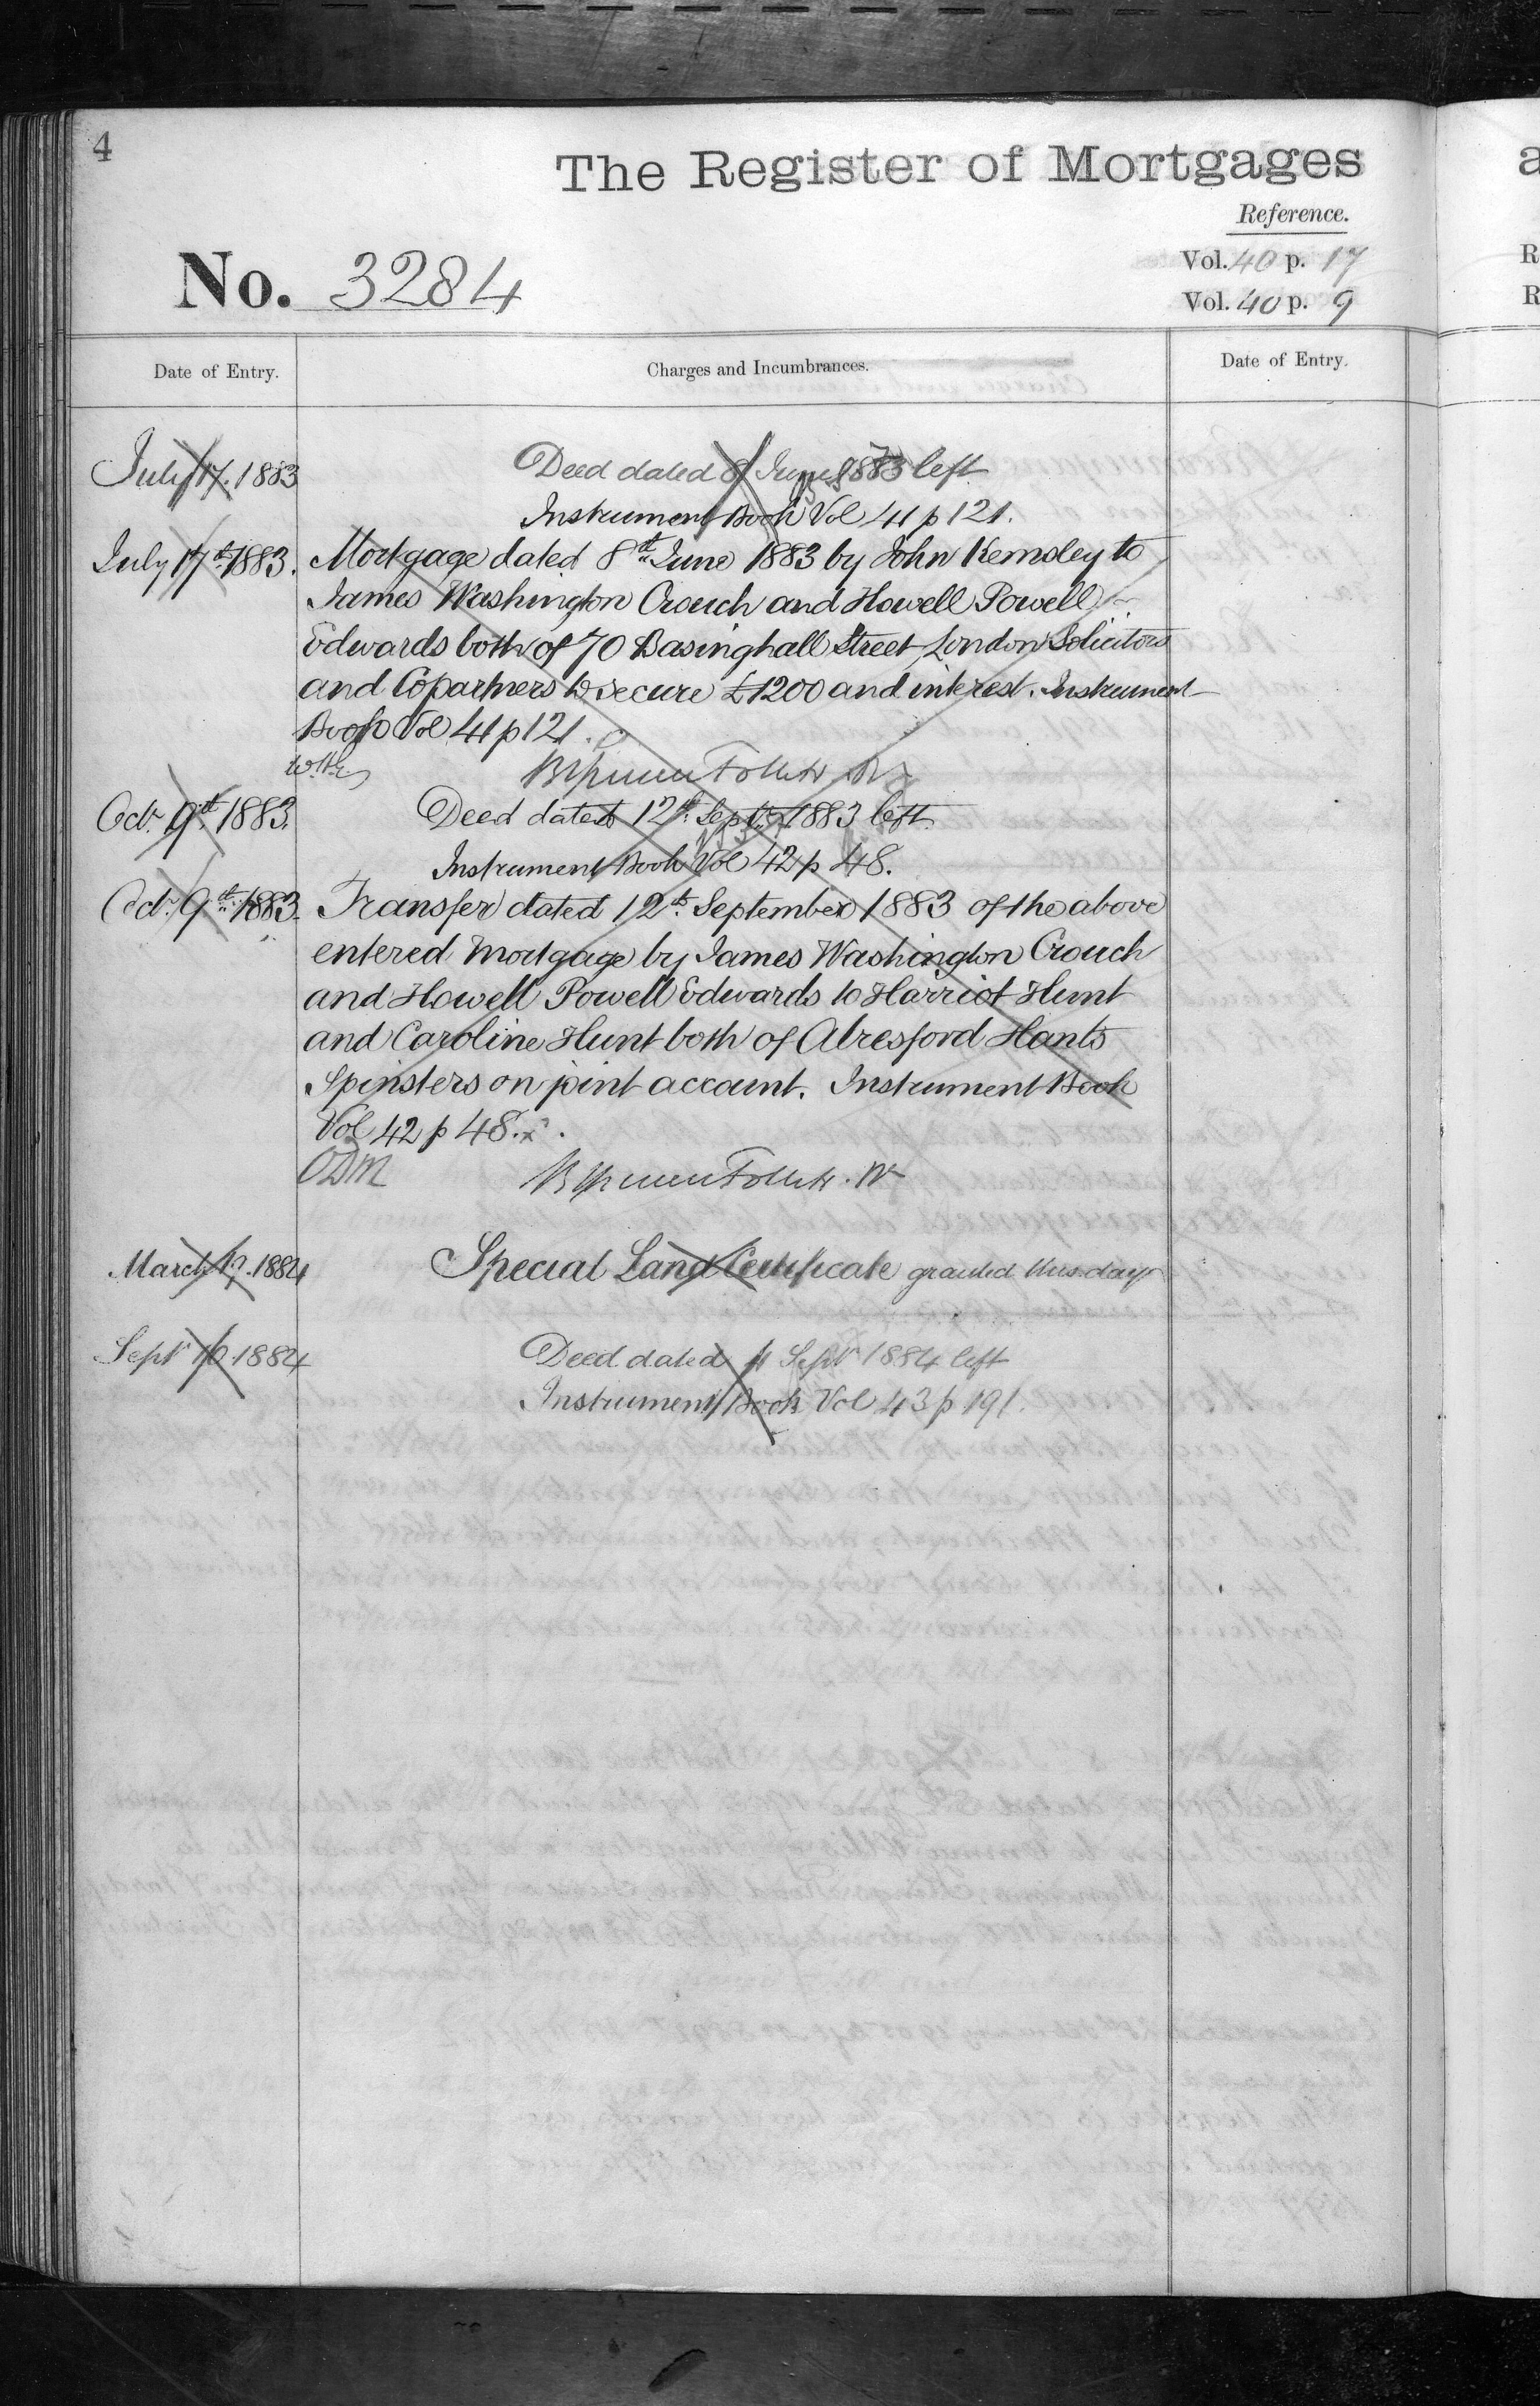 4
The Register of Mortgages
Reference.
Vol. 40 p. 17
Vol. 40 p. 9
No. 3284
Date of Entry.
Charges and Incumbrances.
Date of Entry.
July 17. 1883
Deed dated 8 June 1883 left
Instrument Book Vol 41 p 121.
July 17th 1883.
Mortgage dated 8th June 1883 by John Kemsley to
James Washington Crouch and Howell Powell
Edwards both of 70 Basinghall Street London Solicitors
and Copartners to secure £1200 and interest. Instrument
Book Vol 41 p 121.
Octr. 9th 1883.
Deed dated 12th Septr. 1883 left
Instrument Book Vol 42 p 48.
Octr. 9th 1883.
Transfer dated 12th September 1883 of the above
entered Mortgage by James Washington Crouch
and Howell Powell Edwards to Harriot Hunt
and Caroline Hunt both of Alresford Hants
Spinsters on joint account. Instrument Book
Vol 42 p 48.
ODM
March 1884
Special Land Certificate granted this day
Septr 16 1884
Deed dated Septr 1884 left
Instrument Book Vol 43 p 191.
a
R
R